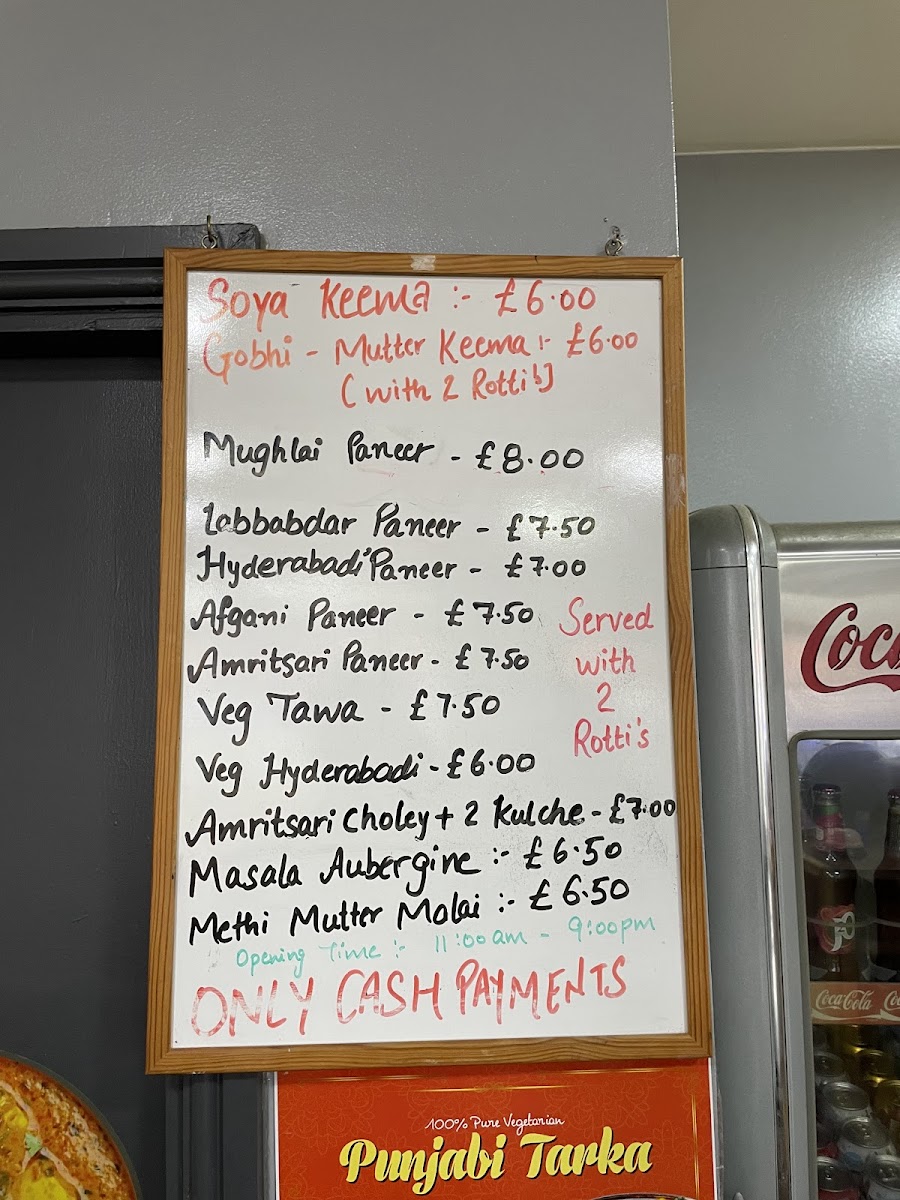 Soya Keema :- £6.00
Gobhi - Mutter Keema :- £6.00
(with 2 Rotti's)
Mughlai Paneer - £8.00
Labbabdar Paneer - £7.50
Hyderabadi Paneer - £7.00
Afgani Paneer - £7.50
Amritsari Paneer - £7.50
Veg Tawa - £7.50
Served
with
2
Rotti's
Veg Hyderabadi - £6.00
Amritsari Choley + 2 Kulche - £7.00
Masala Aubergine :- £6.50
Methi Mutter Molai :- £6.50
Opening Time :- 11:00am - 9:00pm
ONLY CASH PAYMENTS
100% Pure Vegetarian
Punjabi Tarka
Coca
Coca-Cola